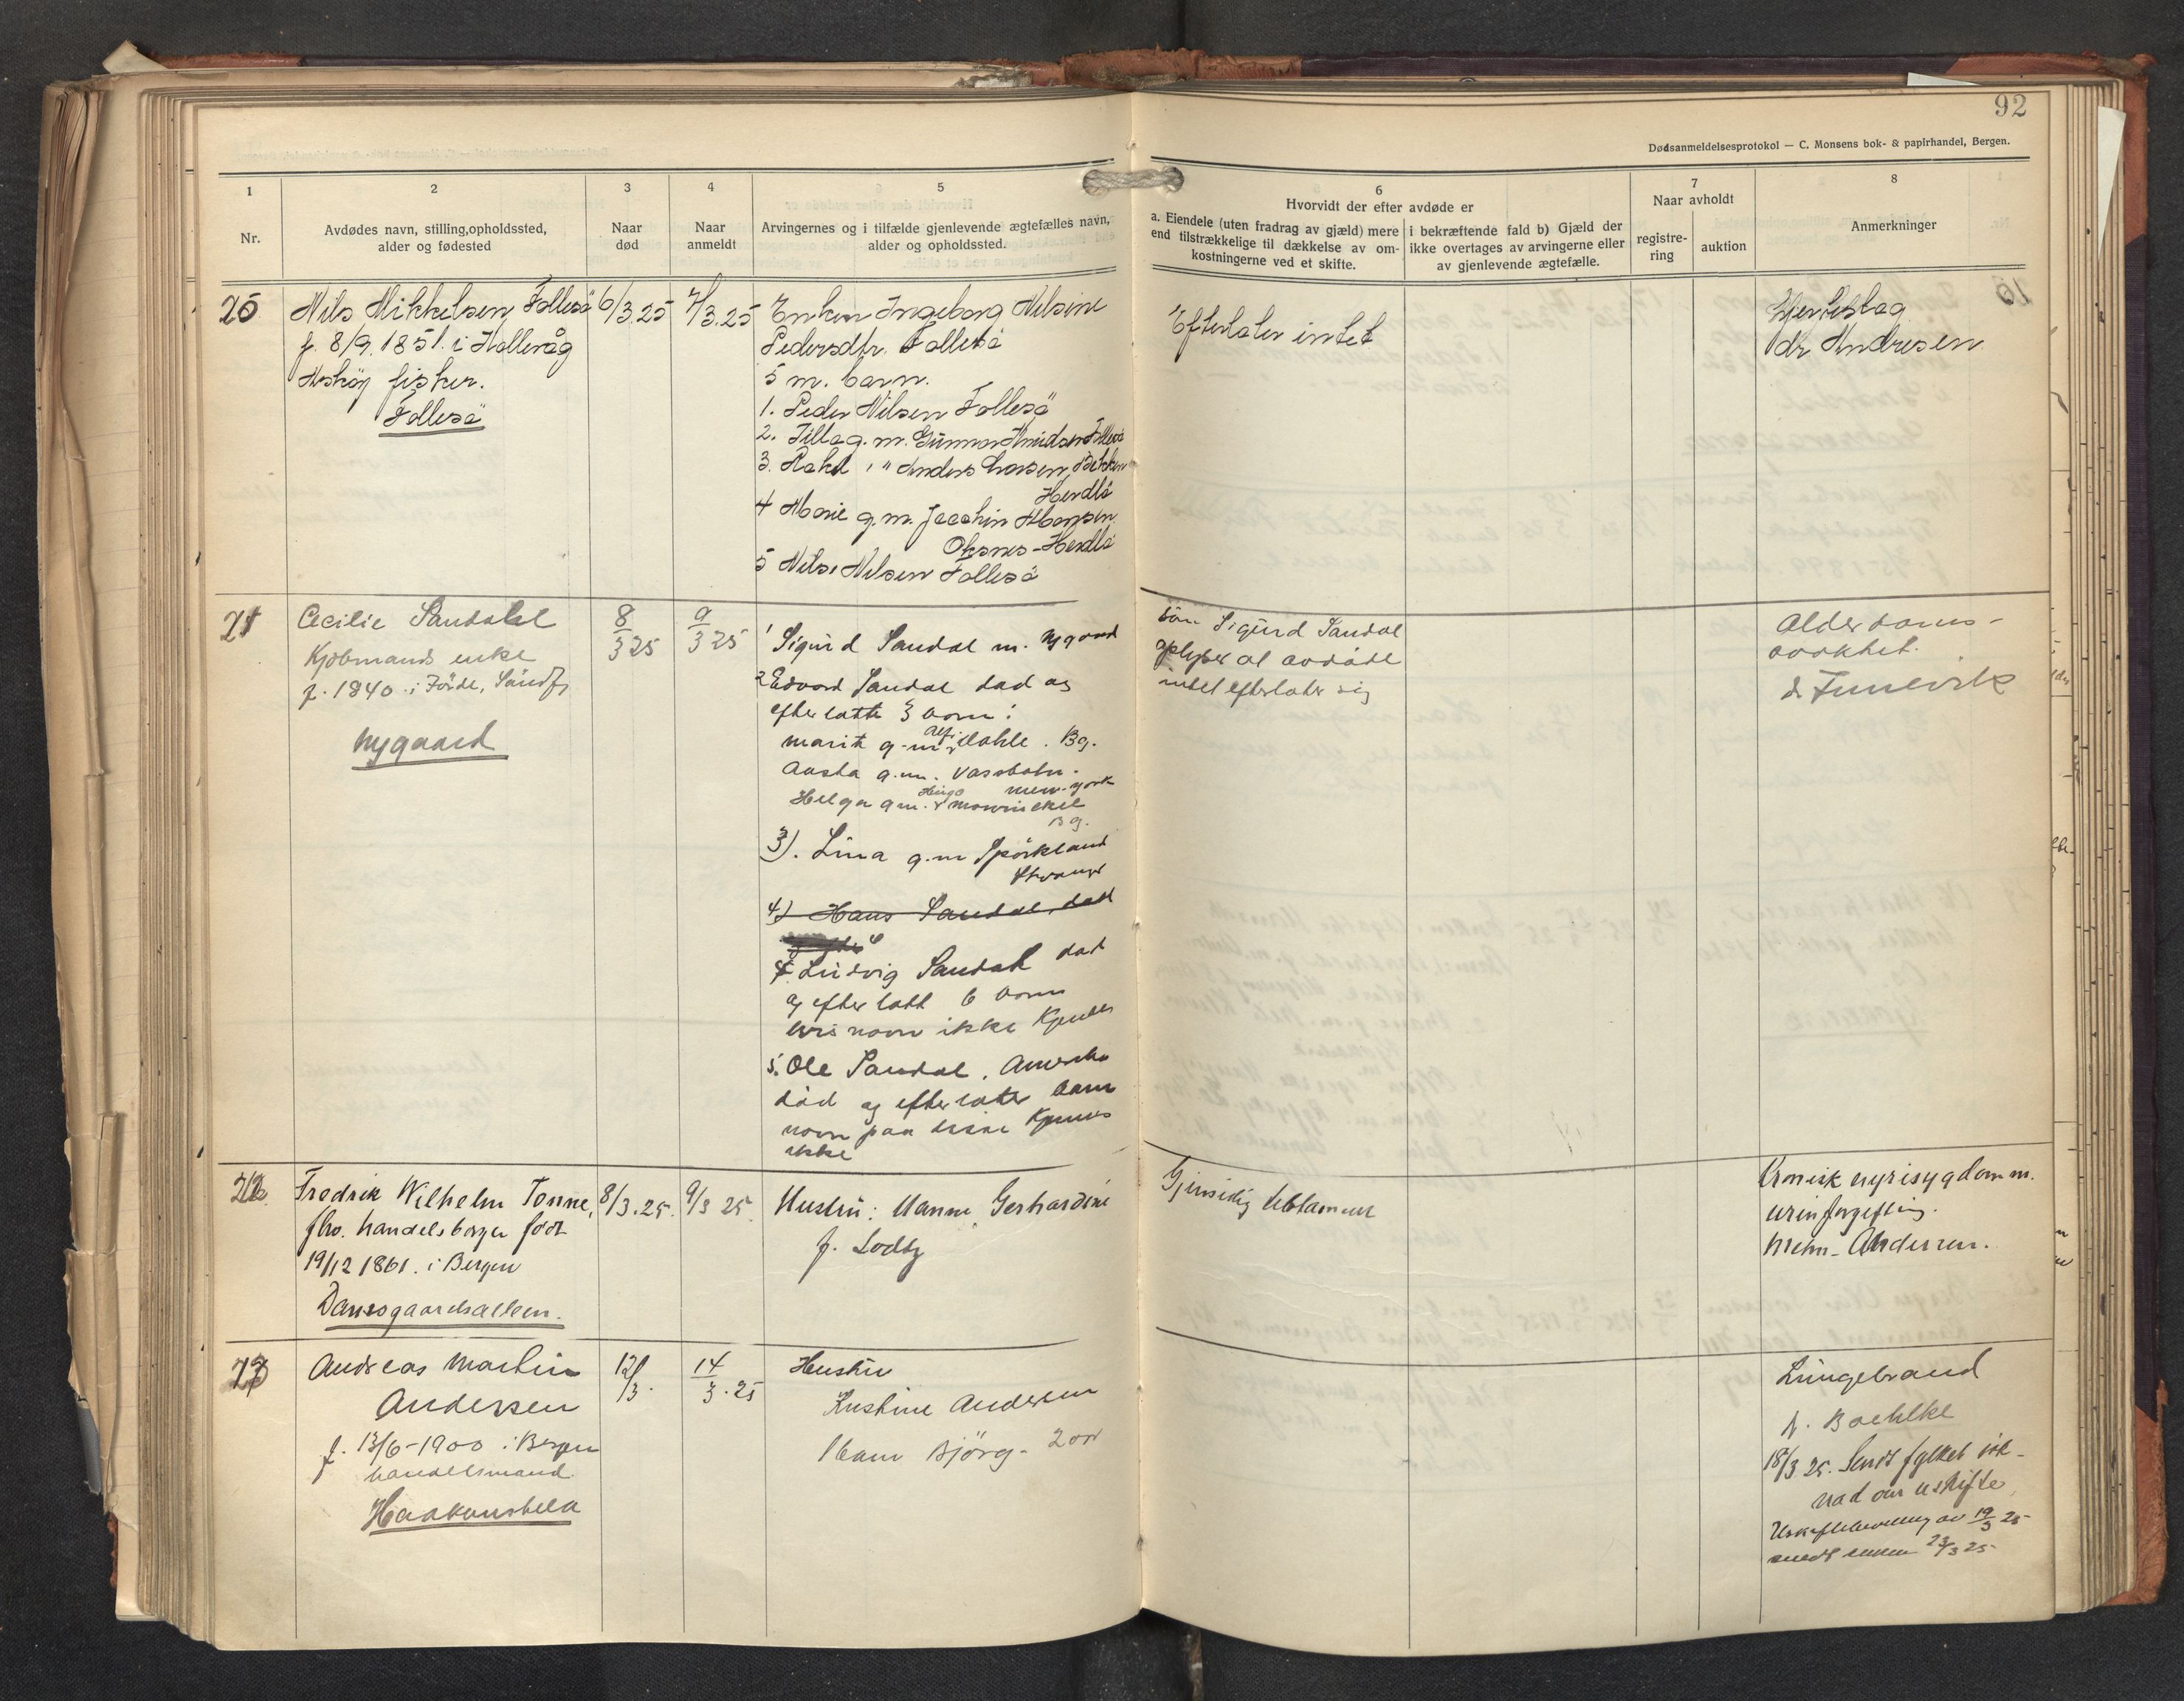 92
Dødsanmeldelsesprotokol — C. Monsens bok- & papirhandel, Bergen.
1
Nr.
2
Avdødes navn, stilling, opholdssted,
alder og fødested
3
Naar
død
4
Naar
anmeldt
5
Arvingernes og i tilfælde gjenlevende ægtefælles navn,
alder og opholdssted.
6
Hvorvidt der efter avdøde er
a. Eiendele (uten fradrag av gjæld) mere
end tilstrækkelige til dækkelse av om-
kostningerne ved et skifte.
i bekræftende fald b) Gjæld der
ikke overtages av arvingerne eller
av gjenlevende ægtefælle.
7
Naar avholdt
registre-
ring
auktion
8
Anmerkninger
20
Nils Mikkelsen Follesö
f. 8/9 1851. i Holleråg
Askøy fisker.
Follesö
6/3.25
7/3.25
Enken Ingeborg Nilsine
Pedersdtr. Follesö
5 m. barn.
1. Peder Nilsen Follesö
2. Tilla g. m. Gunnar Knudsen Follesö
3. Rakel " " Anders Larsen, Bakken
Herdla
4 Marie g. m. Joachin Hansen
Oksnes - Herdla
5 Nils Nilsen Follesö
Efterlater intet
Hjerteslag
dr Andresen
21
Cecilie Sandal
Kjøbmands enke
f. 1840 i Förde, Söndfj
Nygaard
8/3 25
9/3 25
1 Sigurd Sandal m. Nygaard
2 Edvard Sandal død og
efterlatte 3 barn:
Marit g. m. Alf Dahle. Bg.
Aasta g. m. Vassbotn.
New-york
Helga g m. Hugo Mowinckel
Bg.
3). Lina g. m Spörkland
Stvanger
4) Hans Sandal, død
4. Ludvig Sandal død
og efterlatt 6 barn
hvis navn ikke Kjendes
5. Ole Sandal. Amerika
död og efterlater barn
navn paa disse Kjendes
ikke
Sön Sigurd Sandal
oplyser at avdöde
intet efterlater sig
Alderdoms-
svakhet.
dr Tunevik
22
Fredrik Wilhelm Tonne,
fhv. handelsborger født
19/12 1861. i Bergen
Damsgaardsalleen.
8/3. 25.
9/3 25
Hustru: Nanna Gerhardine
f. Lodtz
Gjensidig testament
Kronisk nyresygdom m.
urinforgiftning.
Mohn-Andersen.
23
Andreas Martin
Andersen
f. 13/6-1900 i Bergen
handelsmand
Haakonshella
12/3.
14/3. 25
Hustru
Kristine Andersen
1 barn Björg - 2 aar
Lungebrand
dr. Boehlke
18/3 25. Sendt fylket söknad
om uskifte
Uskiftebevilling av 19/3 25
sendt enken 23/3 25